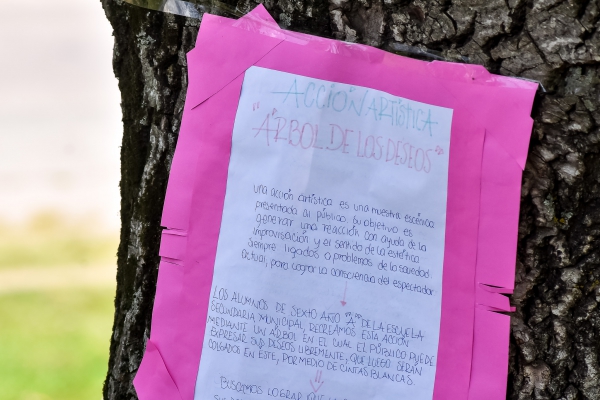 ACCIÓN ARTÍSTICA
"ÁRBOL DE LOS DESEOS"
una acción artística es una muestra escénica
presentada al público. Su objetivo es
generar una reacción con ayuda de la
improvisación y el sentido de la estética
siempre ligados a problemas de la sociedad
actual, para lograr la consciencia del espectador
LOS ALUMNOS DE SEXTO AÑO "A" DE LA ESCUELA
SECUNDARIA MUNICIPAL, RECREAMOS ESTA ACCIÓN
MEDIANTE UN ÁRBOL EN EL CUAL EL PÚBLICO PUEDE
EXPRESAR SUS DESEOS LIBREMENTE, QUE LUEGO SERÁN
COLGADOS EN ESTE, POR MEDIO DE CINTAS BLANCAS.
BUSCAMOS LOGRAR QUE